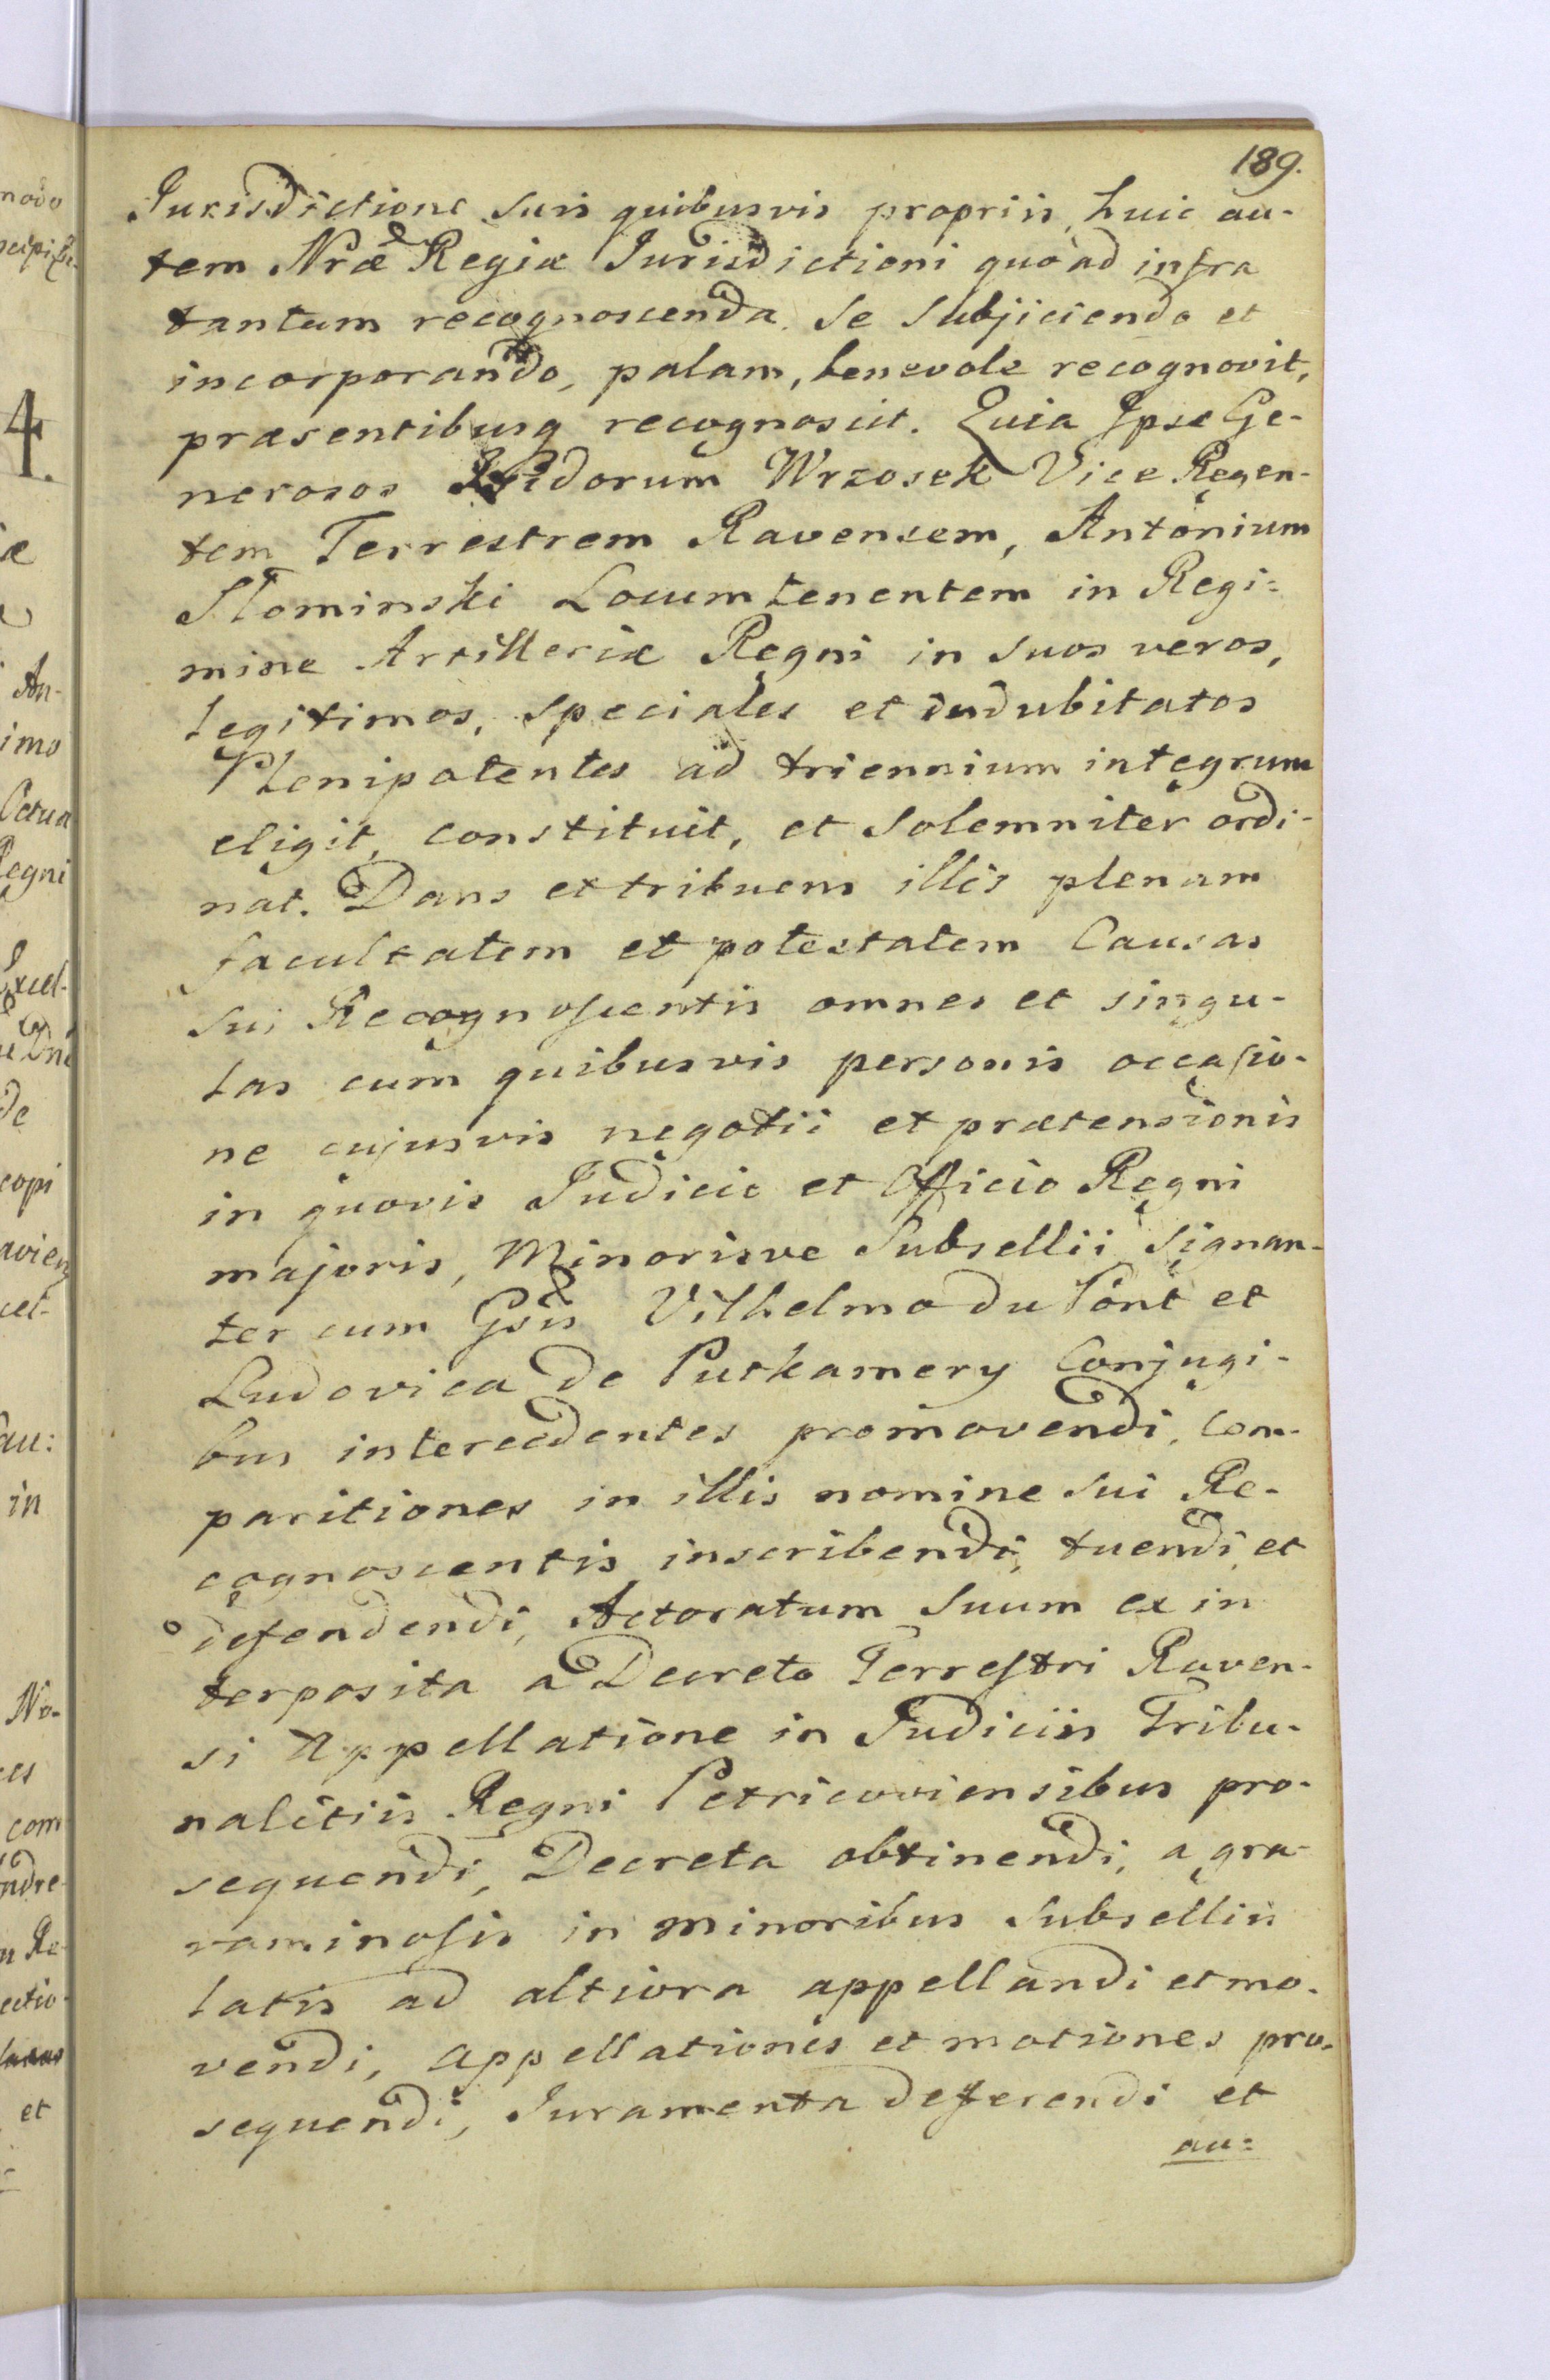 189.
Jurisdictione suis quibusvis propriis, huic au-
tem Nræ Regiæ Jurisdictioni quoad infra
tantum recognoscenda se subjiciendo et
incorporando, palam, benevole recognovit,
præsentibusq recognoscit. Quia Ipse Ge-
nerosos Isidorum Wrzosek Vice Regen-
tem Terrestrem Ravensem, Antonium
Slominski Locumtenentem in Regi=
mine Artilleriæ Regni in suos veros,
legitimos, speciales et indubitatos
Plenipotentes ad triennium integrum
eligit, constituit, et solemniter ordi-
nat. Dans et tribuens illis plenam
facultatem et potestatem Causas
sui Recognoscentis omnes et singu-
las cum quibusvis personis occasio-
ne cujusvis negotii et prætensionis
in quovis Judicio et Officio Regni
majoris, Minorisve Subsellii signan-
ter cum Gsis Vilhelmo du Pont et
Ludovica de Putkamery Conjugi-
bus intercedentes promovendi, Com-
paritiones in illis nomine sui Re-
cognoscentis inscribendi, tuendi et
defendendi, Actoratum suum ex in
terposita a Decreto Terrestri Raven-
si Appellatione in Judiciis Tribu-
nalitiis Regni Petricoviensibus pro-
sequendi, Decreta obtinendi, a gra-
vaminosis in minoribus Subselliis
latis ad altiora appellandi et mo-
vendi, appellationes et motiones pro-
sequendi, Juramenta deferendi et
au=
modo
4.
æ
An-
imo
Regni
Excel-
de
copi
cel-
in
No-
com
Re-
et